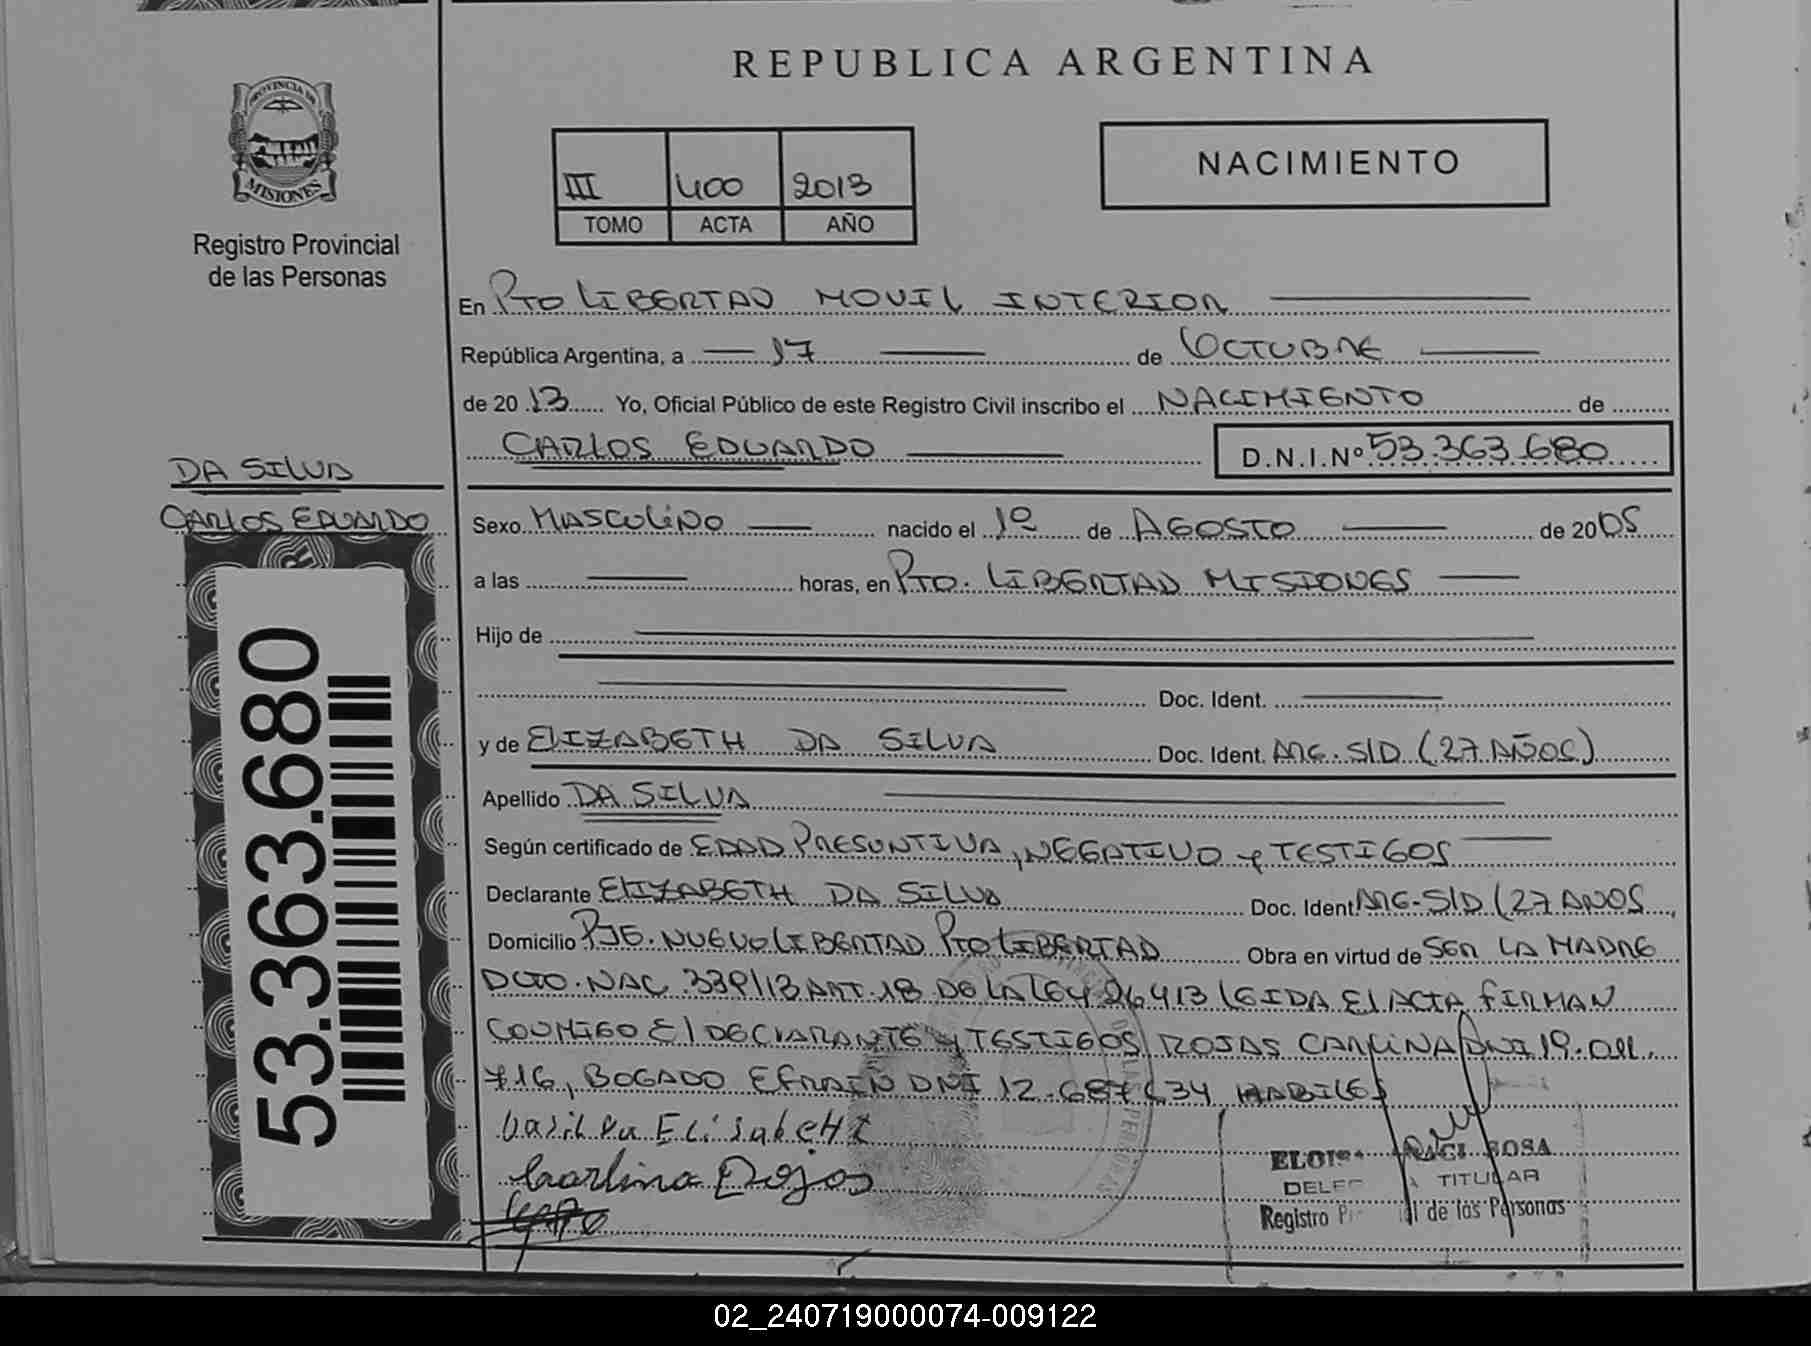 REPUBLICA ARGENTINA
PROVINCIA DE
MISIONES
Registro Provincial
de las Personas
III 400 2013
TOMO ACTA AÑO
NACIMIENTO
En PTO LIBERTAD MOVIL INTERIOR
República Argentina, a 17 de OCTUBRE
de 2013 Yo, Oficial Público de este Registro Civil inscribo el NACIMIENTO de
CARLOS EDUARDO D.N.I.Nº 53.363.680
DA SILVA
CARLOS EDUARDO
53.363.680
Sexo MASCULINO nacido el 1º de AGOSTO de 2005
a las horas, en PTO. LIBERTAD MISIONES
Hijo de
Doc. Ident.
y de ELIZABETH DA SILVA Doc. Ident. ARG. S/D (27 AÑOS)
Apellido DA SILVA
Según certificado de EDAD PRESUNTIVA, NEGATIVO y TESTIGOS
Declarante ELIZABETH DA SILVA Doc. Ident ARG-S/D (27 AÑOS
Domicilio PJE. NUEVO LIBERTAD PTO LIBERTAD Obra en virtud de SER LA MADRE
DCTO. NAC. 339/13 ART. 18 DE LA LEY 26413 LEIDA El ACTA FIRMAN
CONMIGO El DECLARANTE y TESTIGOS ROJAS CARLINA DNI 19.011.
716, BOGADO EFRAIN DNI 12.687.634 HABILES
Dasilva Elisabeht
Carlina Rojas
ELOISA ROSA
TITULAR
Registro de las Personas
02_240719000074-009122